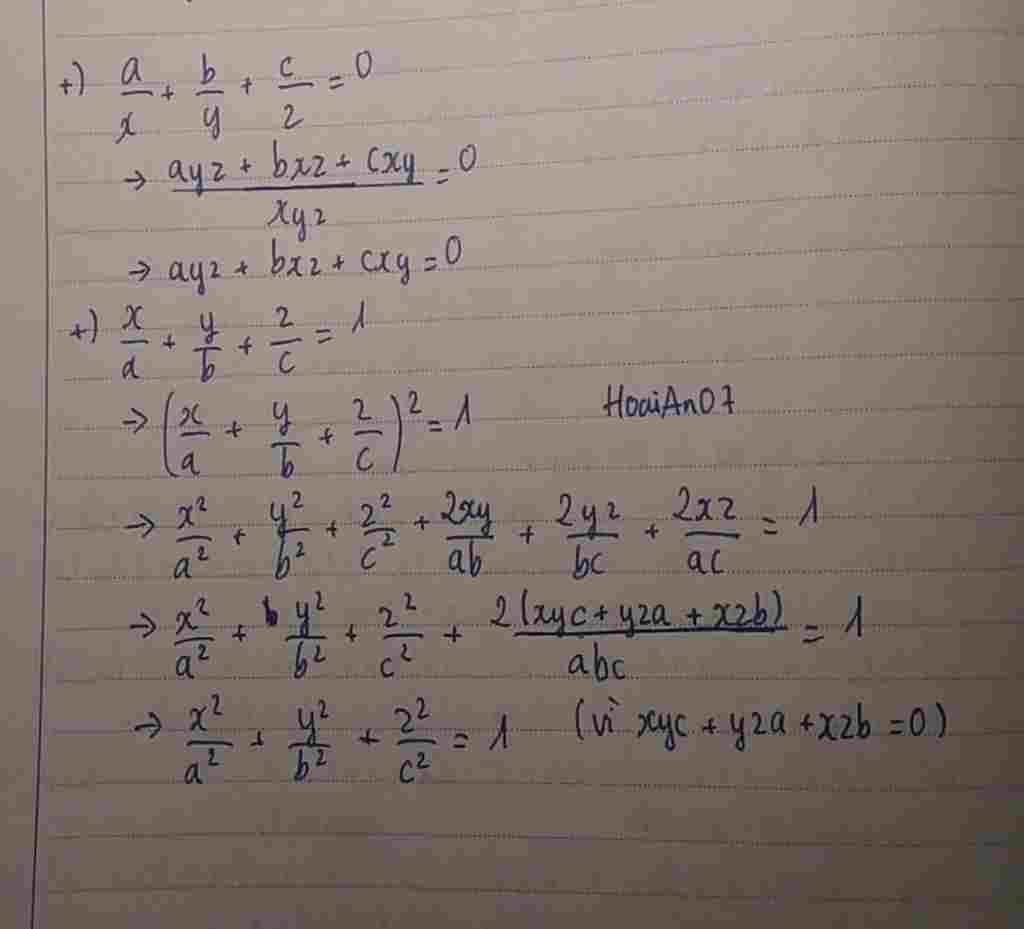 +) a/x + b/y + c/z = 0
→ (ayz + bxz + cxy)/xyz = 0
→ ayz + bxz + cxy = 0
+) x/a + y/b + z/c = 1
→ (x/a + y/b + z/c)² = 1
HoaiAn07
→ x²/a² + y²/b² + z²/c² + 2xy/ab + 2yz/bc + 2xz/ac = 1
→ x²/a² + y²/b² + z²/c² + 2(xyc + yza + xzb)/abc = 1
→ x²/a² + y²/b² + z²/c² = 1 (vì xyc + yza + xzb = 0)